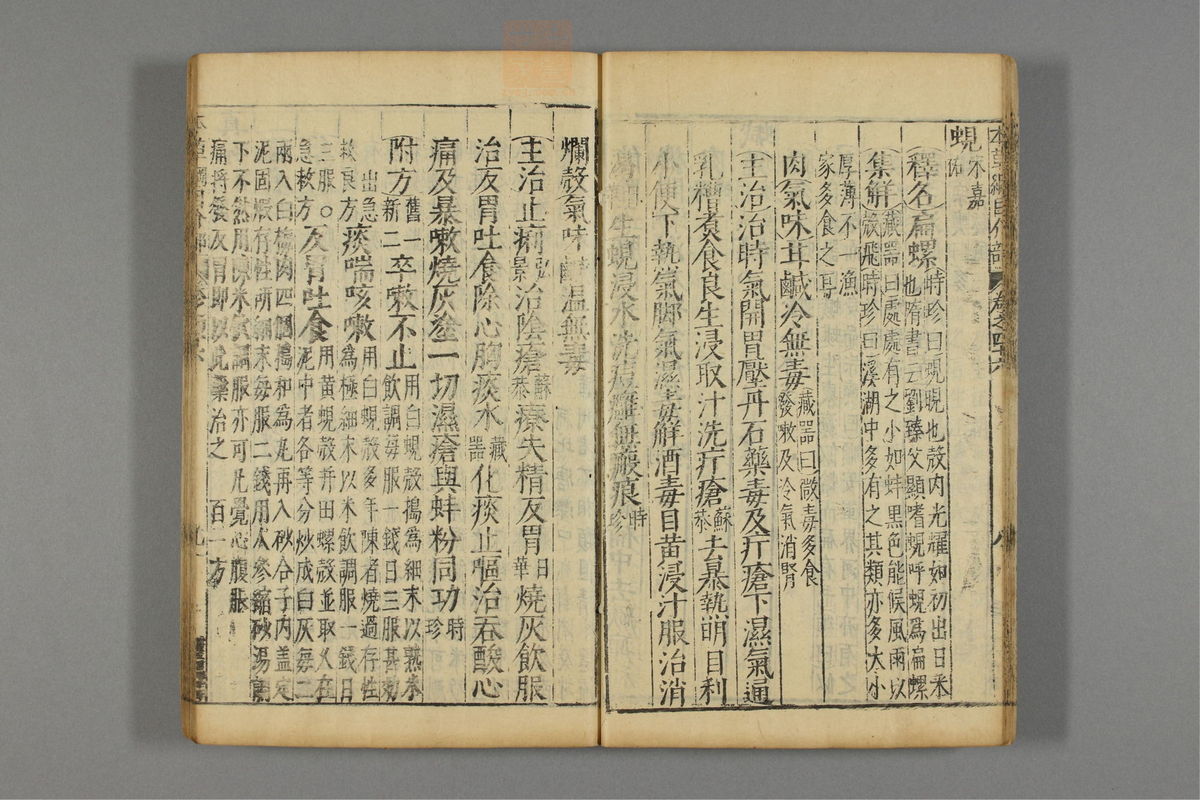 本草綱目介部 卷之四十六 八
蜆宋嘉祐
釋名扁螺時珍曰蜆晛也殼内光耀如初出日采
也隋書云劉臻父顯嗜蜆呼蜆為扁螺
集解藏器曰處處有之小如蚌黒色能候風雨以
殼飛時珍曰溪湖中多有之其類亦多大小
厚薄不一漁
家多食之耳
肉氣味甘鹹冷無毒藏器曰微毒多食
發嗽及冷氣消腎
主治治時氣開胃壓丹石藥毒及疔瘡下濕氣通
乳糟煮食良生浸取汁洗疔瘡蘇恭去暴熱明目利
小便下熱氣脚氣濕毒解酒毒目黄浸汁服治消
生蜆浸水洗痘癰無瘢痕時珍
爛殼氣味鹹温無毒
主治止痢弘景治陰瘡蘇恭療失精反胃日華燒灰飲服
治反胃吐食除心胸痰水藏器化痰止嘔治吞酸心
痛及暴嗽燒灰塗一切濕瘡與蚌粉同功時珍
附方舊一新二卒嗽不止用白蜆殼搗為細末以熟米
飲調每服一錢日三服甚効
出急救良方痰喘咳嗽用白蜆殼多年陳者燒過存性
為極細末以米飲調服一錢日
三服○急救方反胃吐食用黄蜆殼并田螺殼並取久在
泥中者各等分炒成白灰每二
兩入白梅肉四個搗和為丸再入砂合子内盖定
泥固煅存性研細末每服二錢用人參縮砂湯調
下不然用陳米飲調服亦可凡覺心腹脹
痛將發反胃即以此藥治之 百一方
九